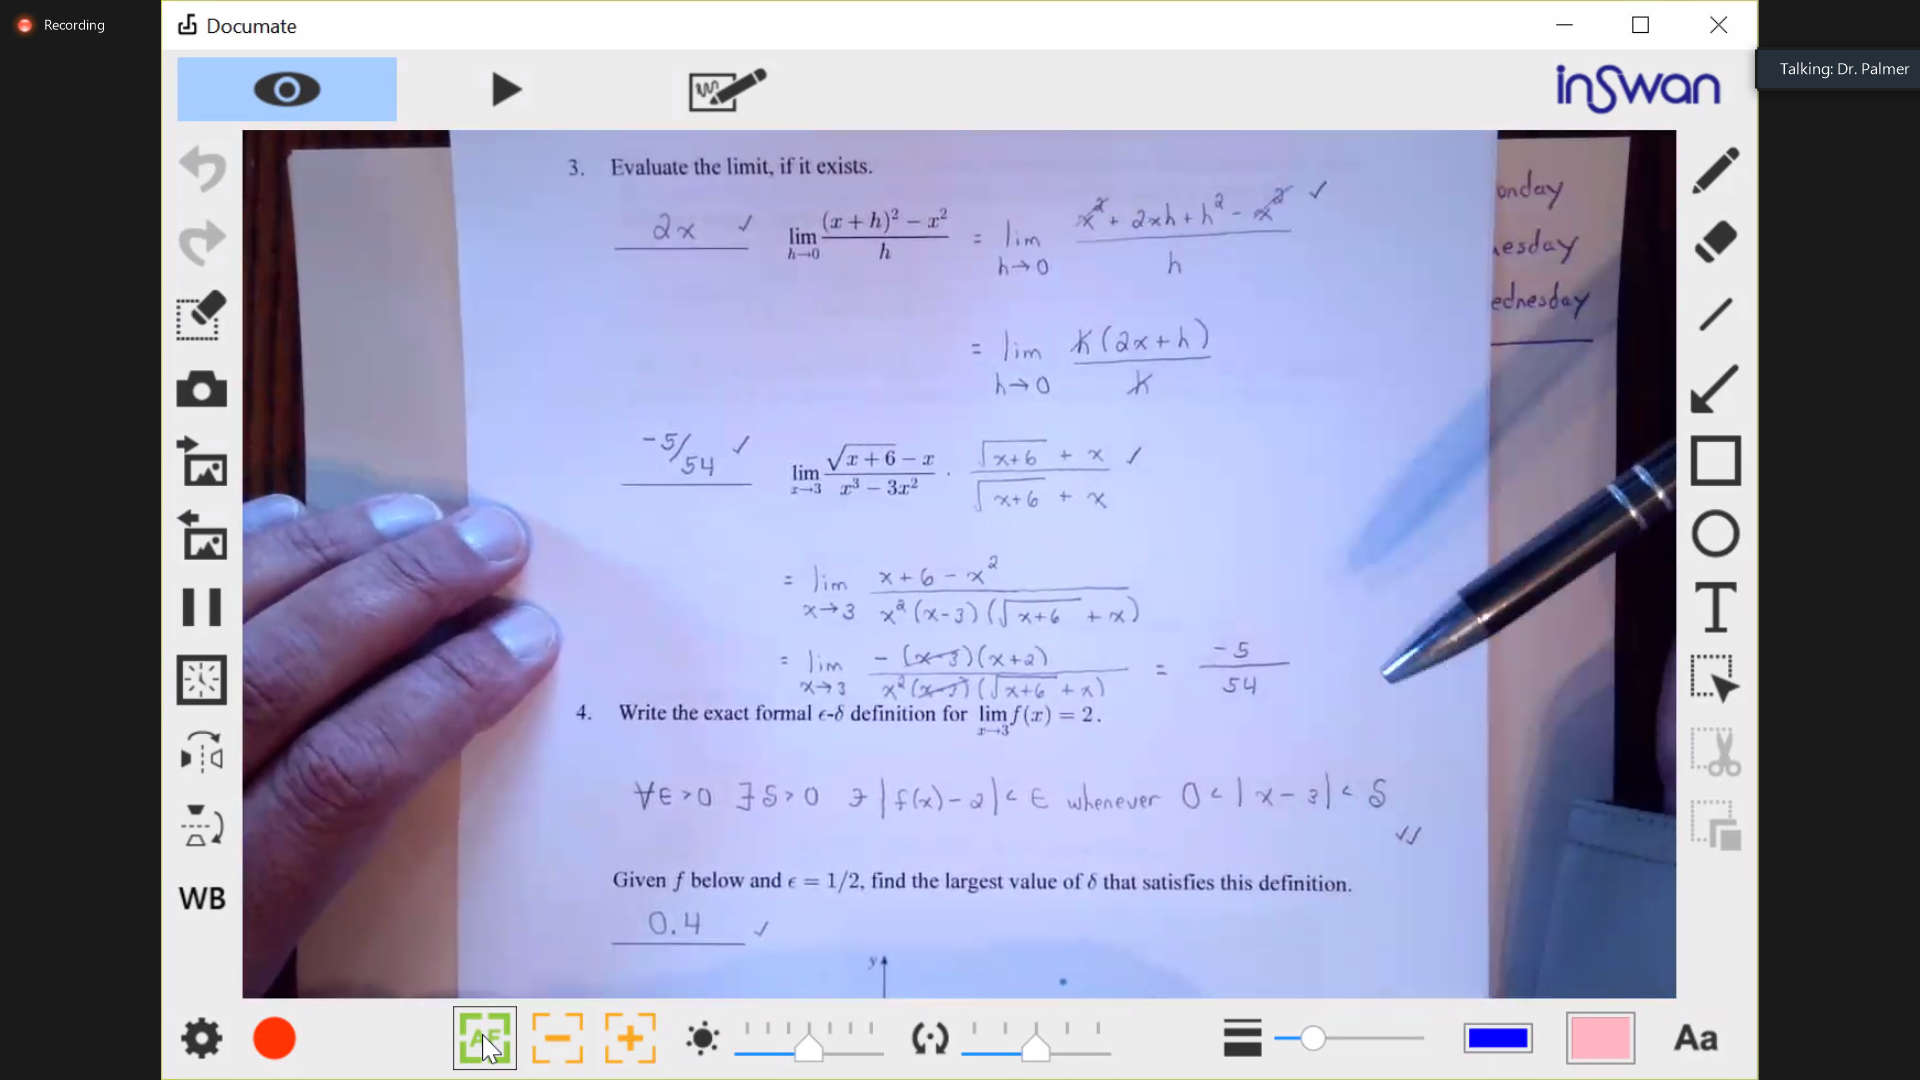 Recording
Documate
inSwan
Talking: Dr. Palmer
3. Evaluate the limit, if it exists.
2x ✓ lim h→0 (x + h)² − x² / h = lim h→0 x² + 2xh + h² - x² / h ✓
= lim h→0 h(2x+h) / h
-5/54 ✓ lim x→3 √x + 6 − x / x³ − 3x² · √x+6 + x / √x+6 + x ✓
= lim x→3 x+6-x² / x²(x-3)(√x+6 + x)
= lim x→3 -(x-3)(x+2) / x²(x-3)(√x+6 + x) = -5 / 54
4. Write the exact formal ϵ-δ definition for lim x→3 f(x) = 2.
∀ϵ>0 ∃δ>0 ∋ |f(x)-2|<ϵ whenever 0<|x-3|<δ
✓✓
Given f below and ϵ = 1/2, find the largest value of δ that satisfies this definition.
0.4 ✓
y
onday
esday
ednesday
T
WB
AF
Aa